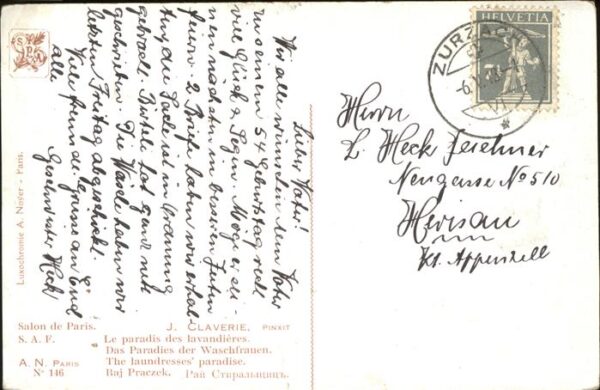 Lieber Vater!
Wir alle wünschen dem Vater
zu seinem 54 Geburtstag recht
viel Glück & Segen. Möge er sei-
nen nächsten in besseren Zeiten
feiern. 2 Briefe haben wir erhal-
ten, die Sache ist in Ordnung
gebracht. Bertele hat auch nett
geschrieben. Die Wäsche haben wir
letzten Freitag abgeschickt.
Viele freundl. Grüsse an Euch
alle
Geschwister Heck
HELVETIA
ZURZACH
Herrn
L. Heck Zeichner
Neugasse No 510
Herisau
Kt. Appenzell
S P A
Luxochromie A. Noyer - Paris.
Salon de Paris.
S. A. F.
A. N. PARIS
No 146
J. CLAVERIE, PINXIT
Le paradis des lavandières.
Das Paradies der Waschfrauen.
The laundresses' paradise.
Raj Praczek. Рай Стиральщицъ.